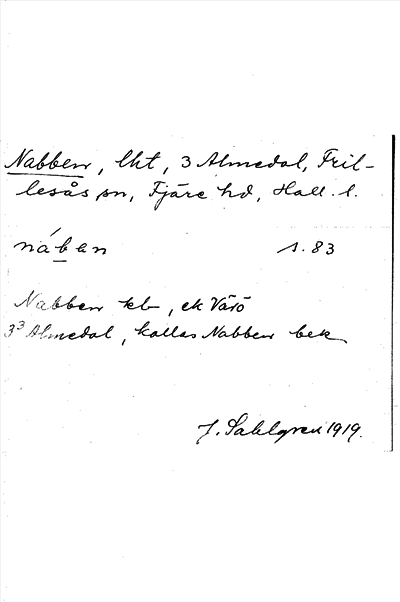 Nabben, lht, 3 Almedal, Fril-
lesås sn, Fjäre hd, Hall. l.
náben s. 83
Nabben eb, ek Värö
3³ Almedal, kallas Nabben bek
J. Sahlgren 1919.